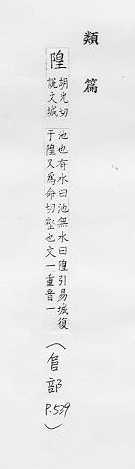 類篇
隍
胡光切
說文城
池也有水曰池無水曰隍引易城復
于隍又為命切壑也文一重音一
(𨸏部 P.539)